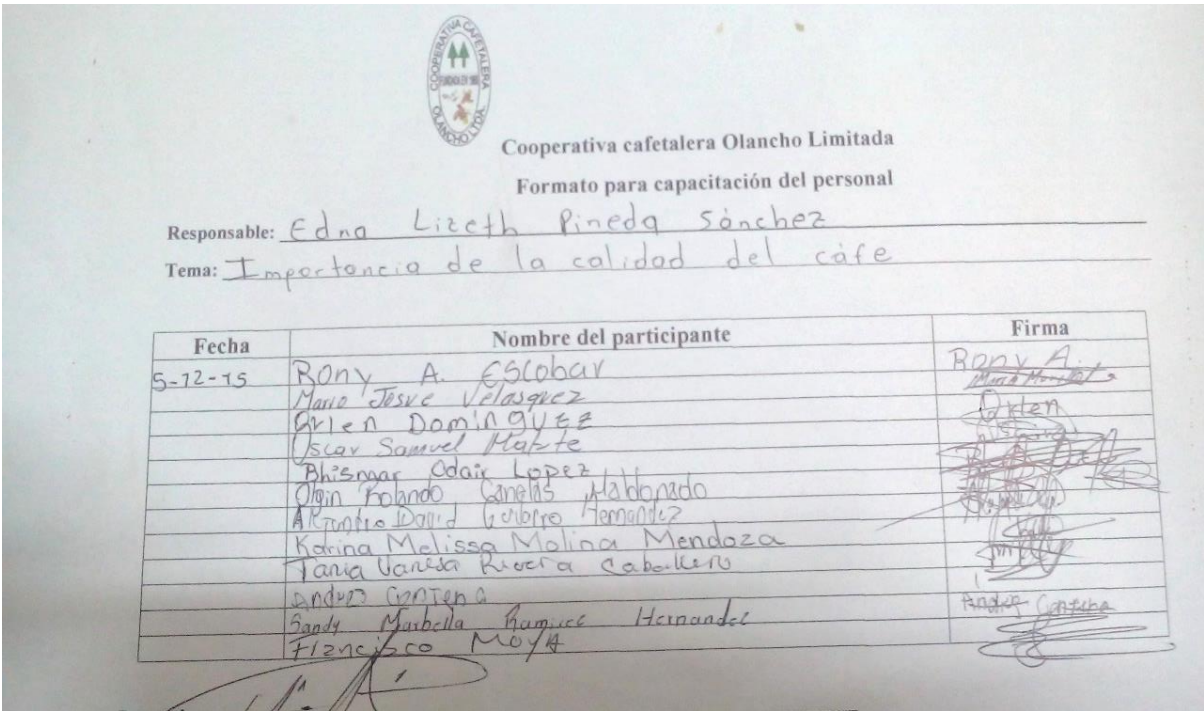 COOPERATIVA CAFETALERA
OLANCHO LTDA.
Cooperativa cafetalera Olancho Limitada
Formato para capacitación del personal
Responsable: Edna Lizeth Pineda Sánchez
Tema: Importancia de la calidad del cáfe
Fecha Nombre del participante Firma
5-12-15 Rony A. Escobar Rony A.
Mario Josue Velasquez
Orlen Dominguez Orlen
Oscar Samuel
Bhisnaar Odair Lopez
Olgin Rolando Canelas Maldonado
David Hernandez
Karina Melissa Molina Mendoza
Tania Vanesa Rivera Caballero
Andres Contena Andres Contena
Sandy Marbella Ramirez Hernandez
Francisco Moya